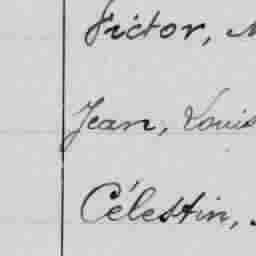 Victor,
Jean, Louis
Célestin,